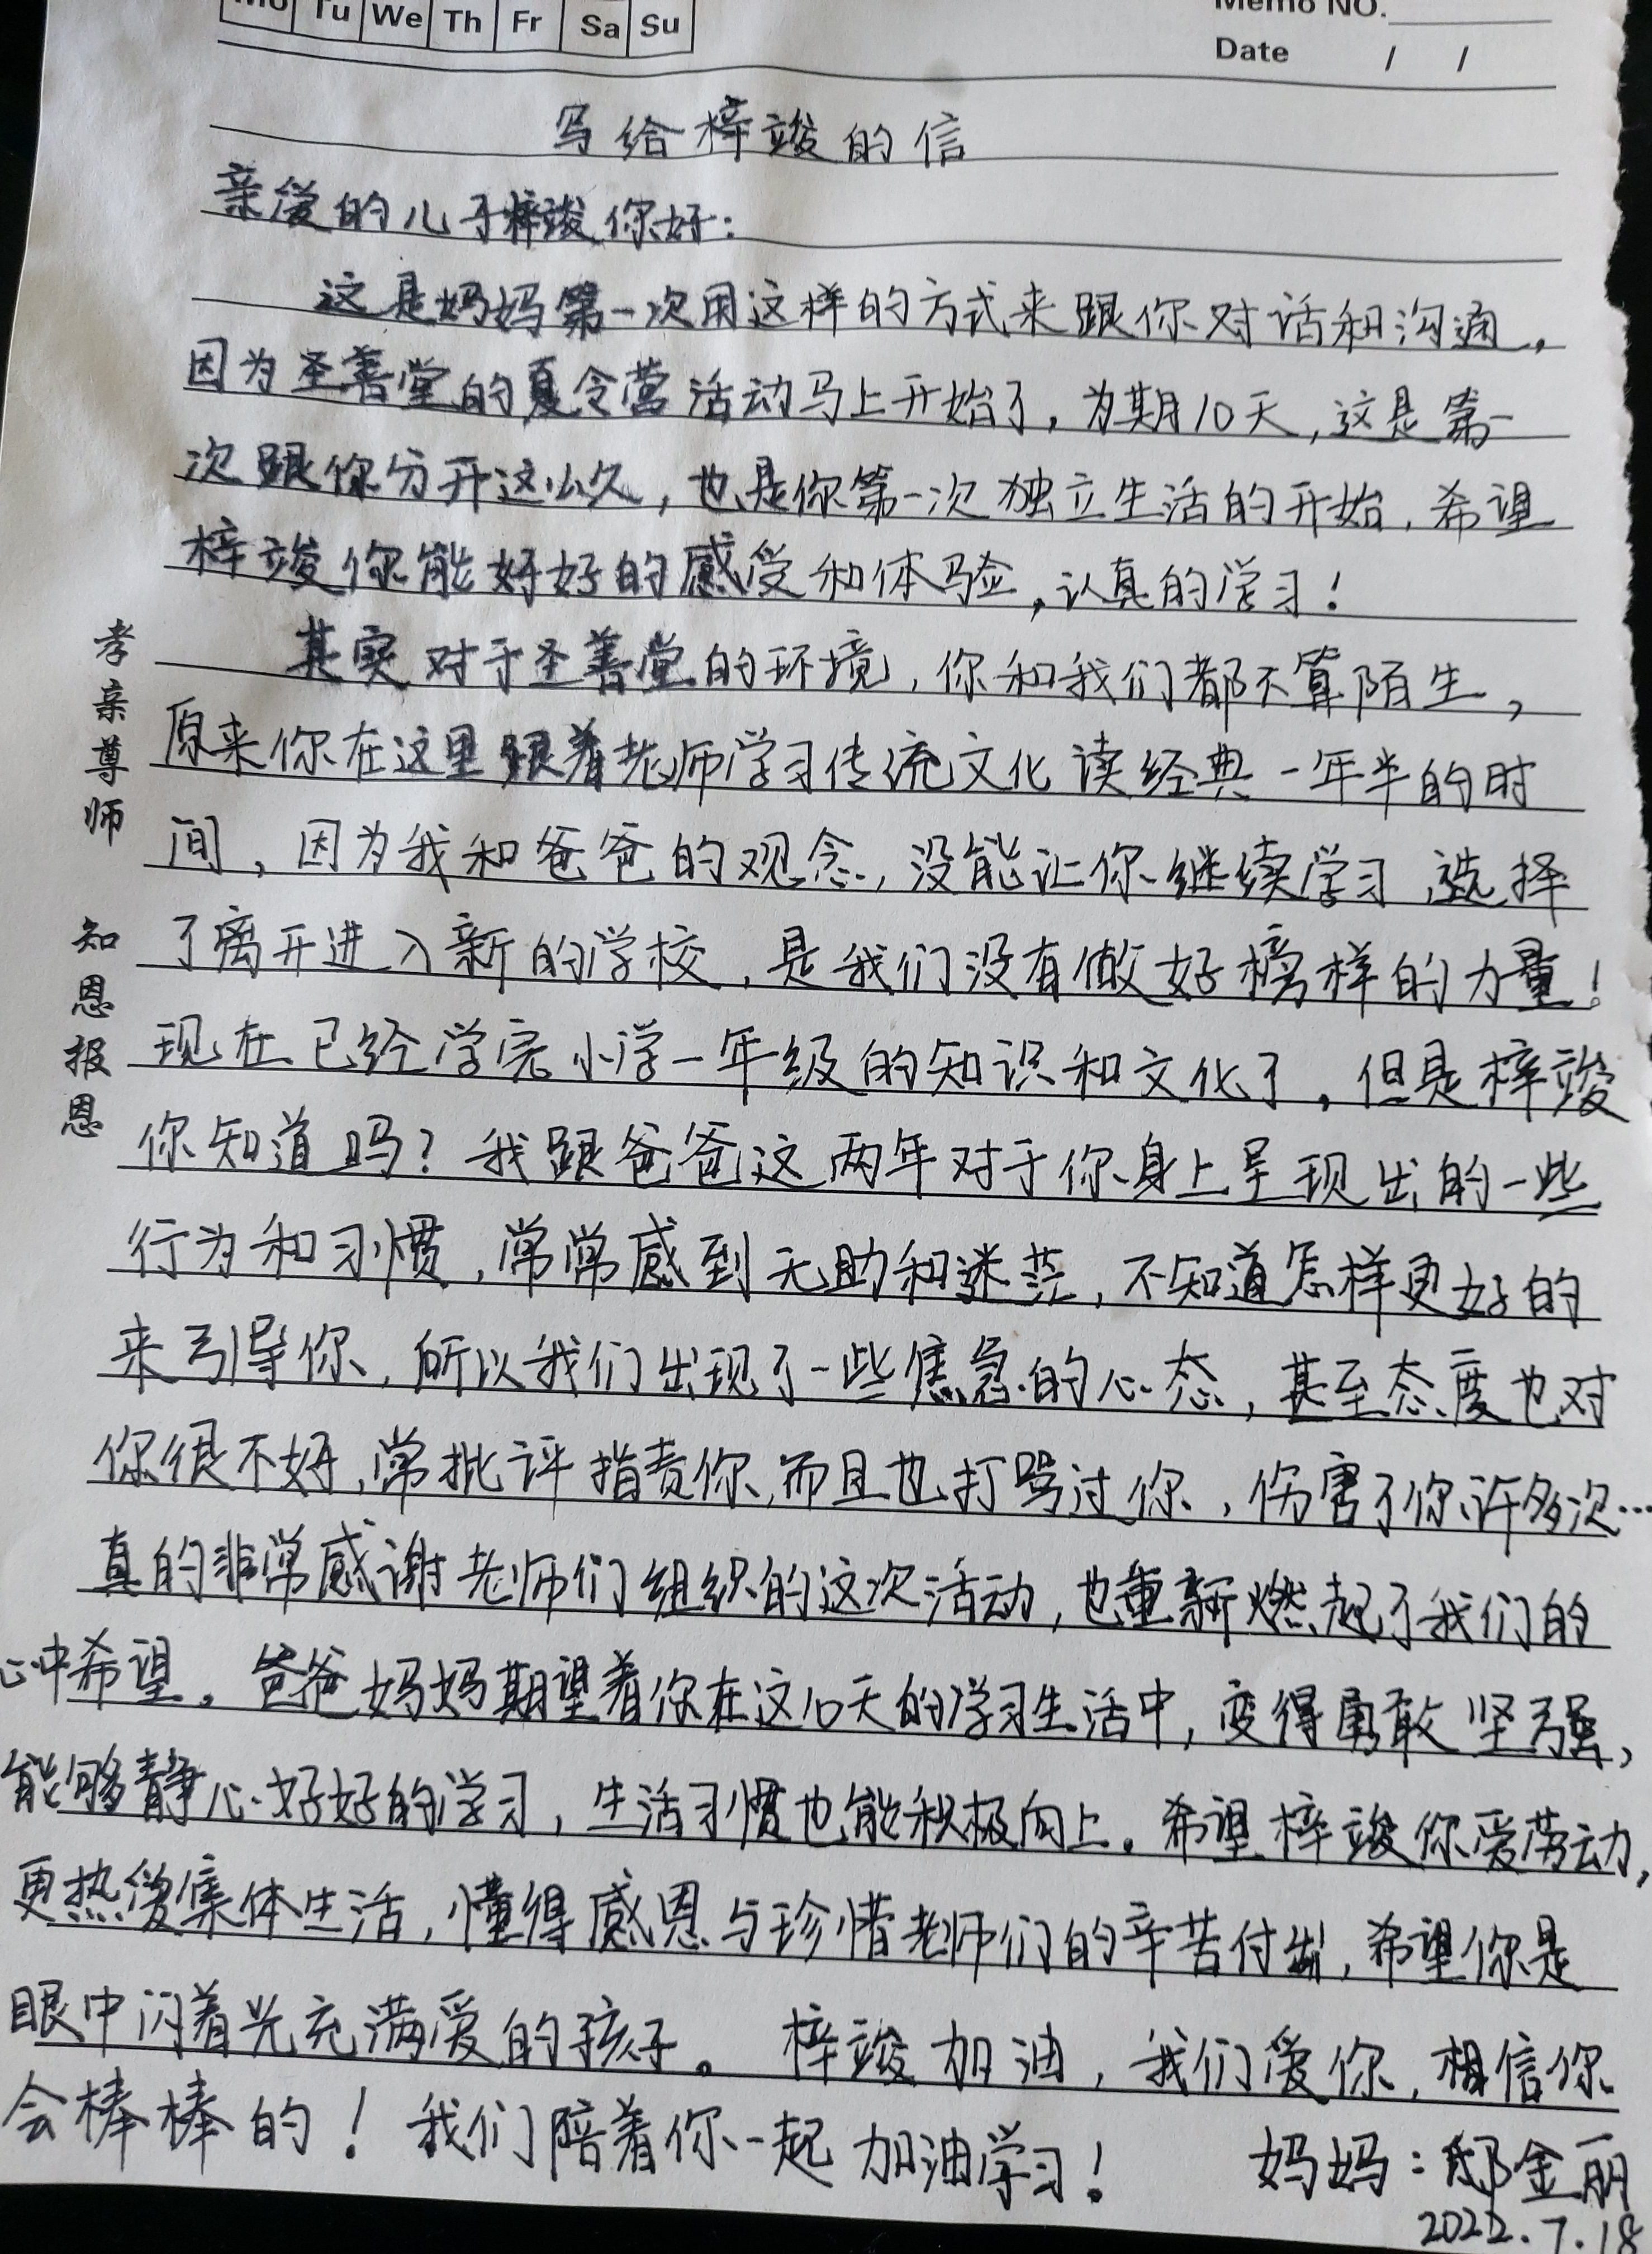 Mo Tu We Th Fr Sa Su
Memo NO.
Date / /
写给梓竣的信
亲爱的儿子梓竣你好：
这是妈妈第一次用这样的方式来跟你对话和沟通，
因为圣善堂的夏令营活动马上开始了，为期10天，这是第一
次跟你分开这么久，也是你第一次独立生活的开始，希望
梓竣你能好好的感受和体验，认真的学习！
其实对于圣善堂的环境，你和我们都不算陌生，
原来你在这里跟着老师学习传统文化读经典一年半的时
间，因为我和爸爸的观念，没能让你继续学习，选择
了离开进入新的学校，是我们没有做好榜样的力量！
现在已经学完小学一年级的知识和文化了，但是梓竣
你知道吗？我跟爸爸这两年对于你身上呈现出的一些
行为和习惯，常常感到无助和迷茫，不知道怎样更好的
来引导你，所以我们出现了一些焦急的心态，甚至态度也对
你很不好，常批评指责你，而且也打骂过你，伤害了你许多次…
真的非常感谢老师们组织的这次活动，也重新燃起了我们的
心中希望。爸爸妈妈期望着你在这10天的学习生活中，变得勇敢坚强，
能够静心好好的学习，生活习惯也能积极向上。希望梓竣你爱劳动，
更热爱集体生活，懂得感恩与珍惜老师们的辛苦付出，希望你是
眼中闪着光充满爱的孩子。梓竣加油，我们爱你，相信你
会棒棒的！我们陪着你一起加油学习！
妈妈：邸金丽
2022.7.18
孝亲尊师 知恩报恩